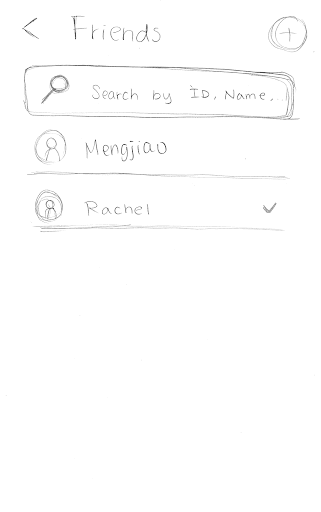 Friends
Search by ID, Name,..
Mengjiao
Rachel